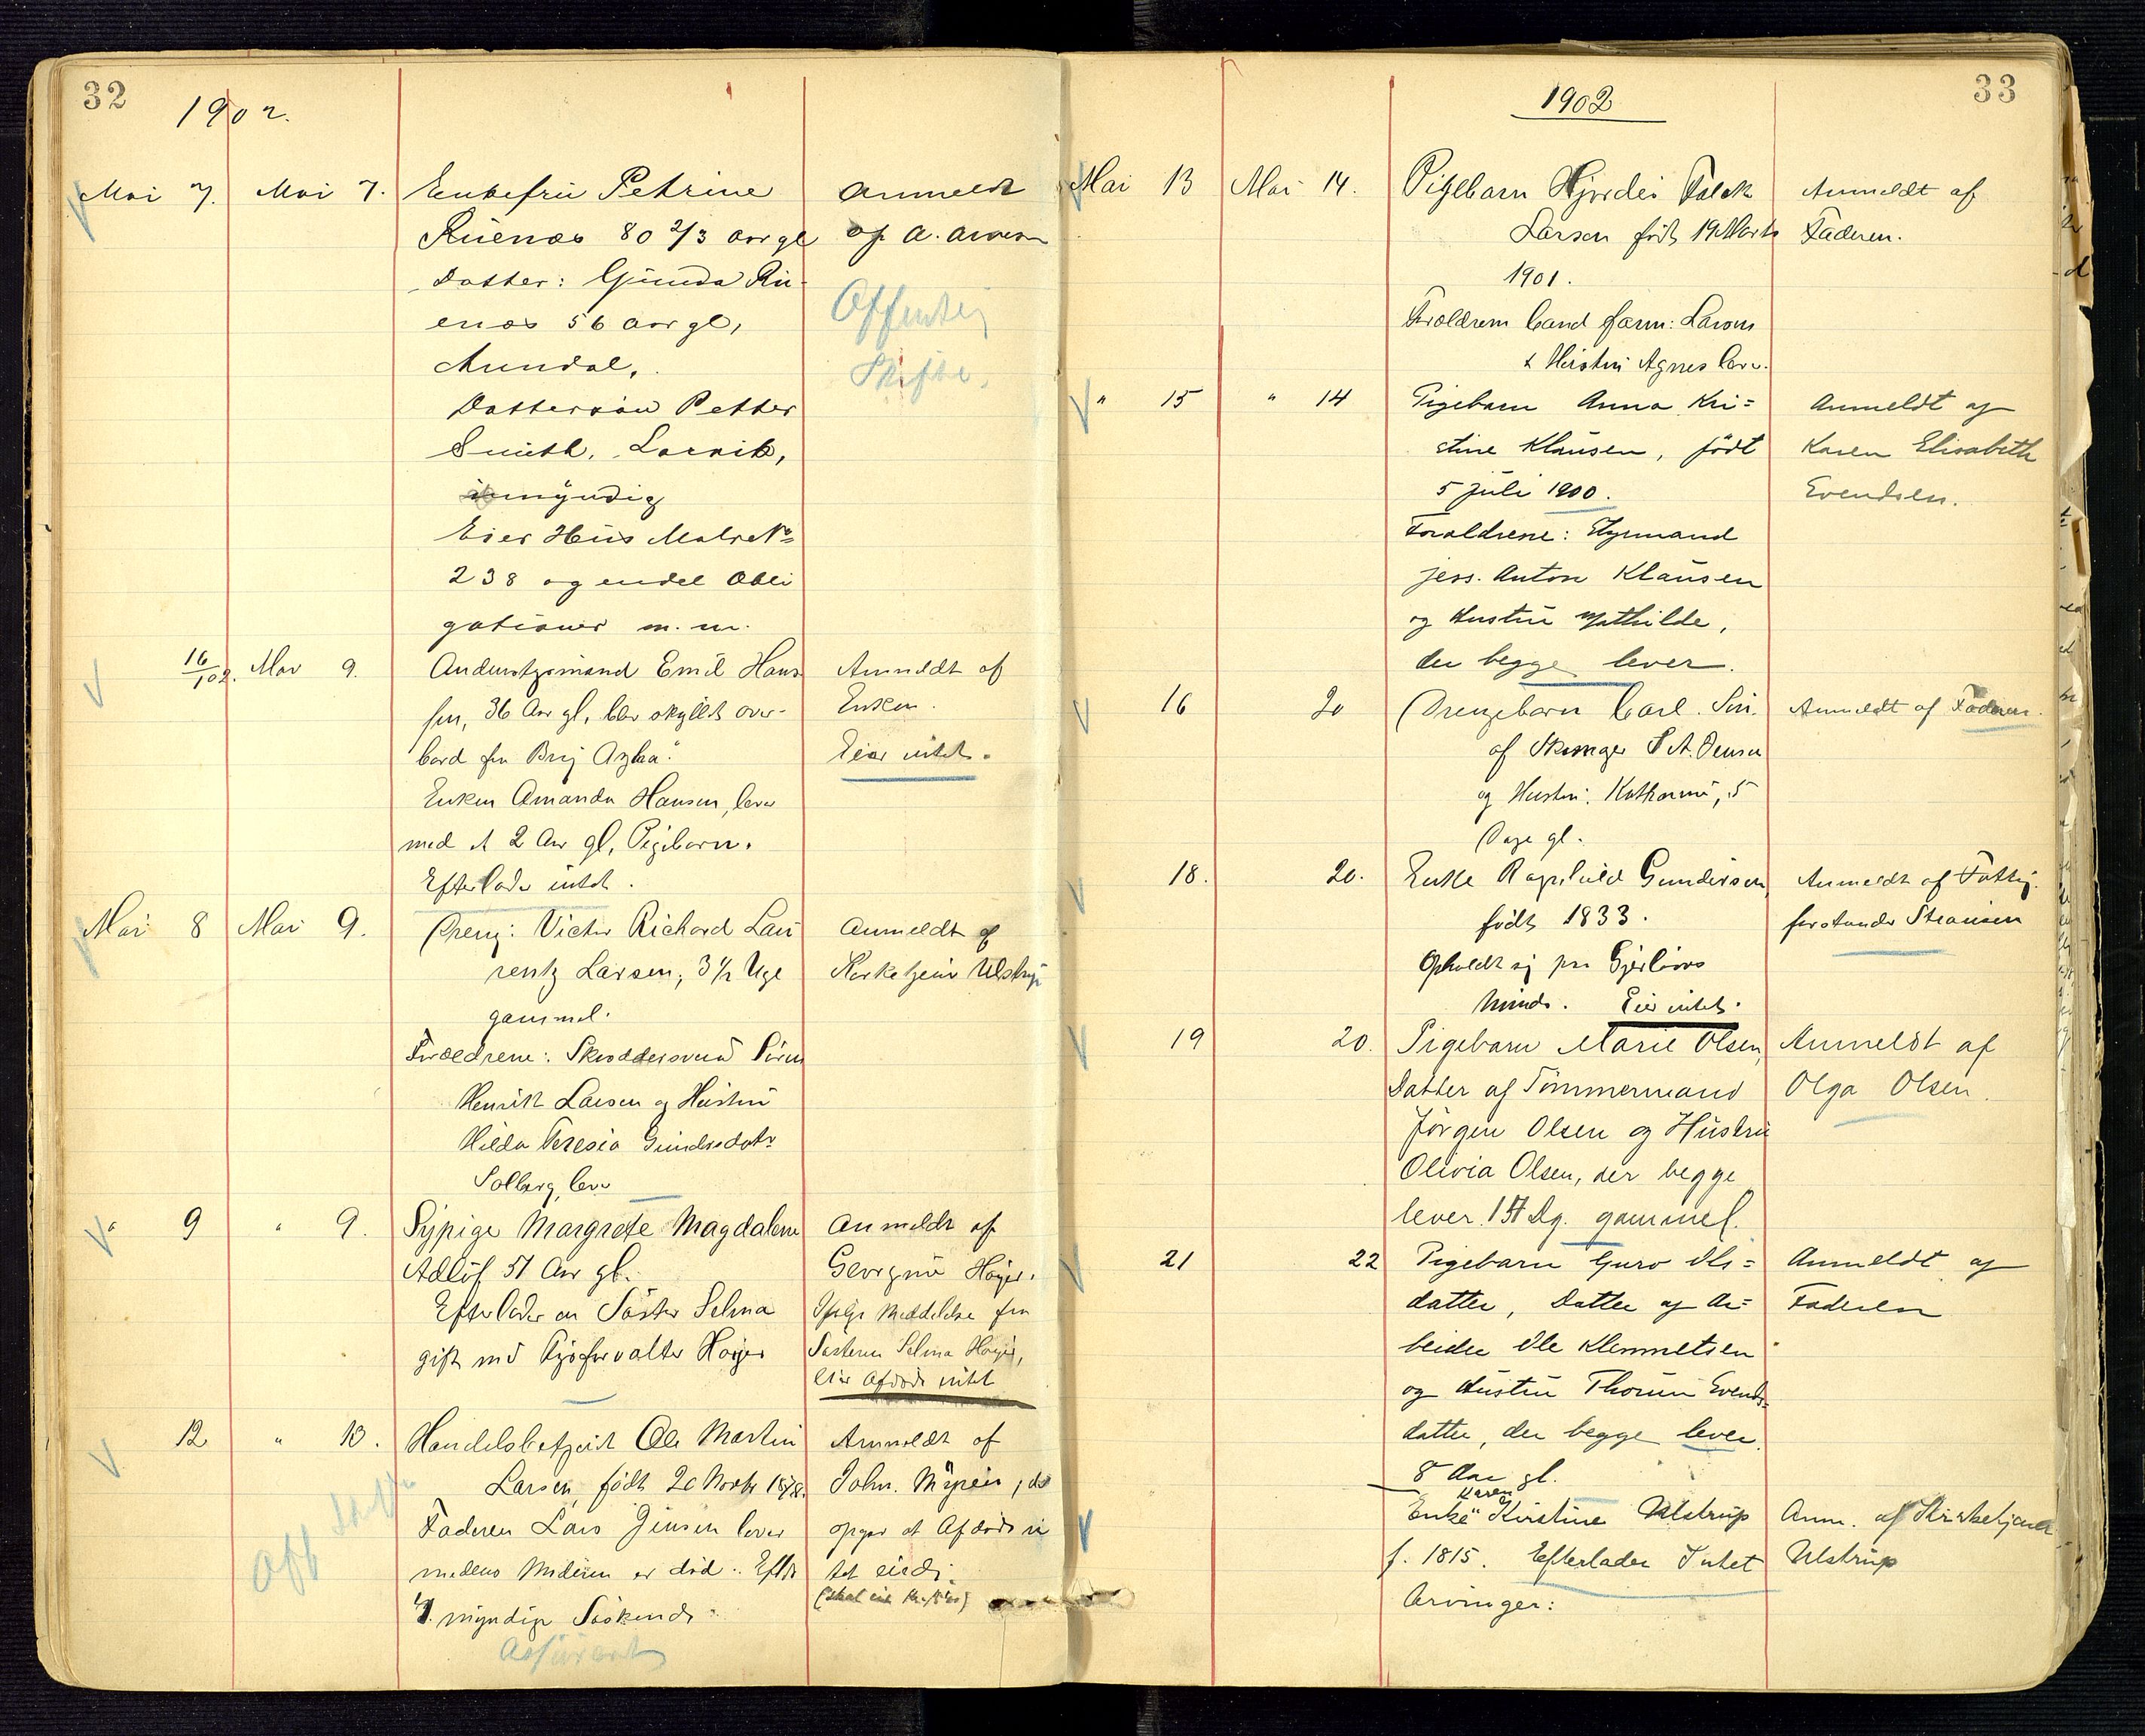 32
1902.
Mai 7. Mai 7. Enkefru Petrine Anmeldt
Ruenæs 80 2/3 Aar gl af A. 
Datter: Gunda Ru-
enæs 56 Aar gl, Offentlig
Arendal, Skifte.
Dattersøn Petter
Smith, Larvik,
umyndig
Eier Hus Matr No
238 og endel Obli
gationer m. m.
16/10 2. Mai 9. Emil Hans Anmeldt af
sen, 36 Aar gl, blev skyllet over- Enken.
bord fra Brig Eier intet.
Enken Amanda Hansen, lever
med et 2 Aar gl, Pigebarn.
Efterlader intet.
Mai 8 Mai 9. Dreng: Victor Richard Lau Anmeldt af
rentz Larsen, 3 1/2 Uge Kirketjener Ulstrup
gammel.
Forældrene: Skræddersvend Sören
Henrik Larsen og Hustru
Hilda Teresia Gundersdatr
Solberg, lever
" 9 " 9. Sypige Margrete Magdalene Anmeldt af
Adlöf 51 Aar gl. Höyer.
Efterlader en Søster Selma Ifølge Meddelelse fra
gift med Höyer Søsteren Selma Höyer,
eier Afdøde intet
12 " 13. Handelsbetjent Ole Martin Anmeldt af
Larsen, födt 20 Novbr 1878. John. 
Faderen Lars Jensen lever opgav at Afdøde in
medens Moderen er död. Eftlr tet eiede.
myndige Söskende
Off Skifte
Assurert
33
1902
Mai 13 Mai 14. Pigebarn Hjørdis Falck Anmeldt af
Larsen født 19 Marts Faderen.
1901.
Forældrene Cand farm: Larsen
& Hustru Agnes lever.
" 15 " 14 Pigebarn Anna Kri= Anmeldt af
stine Klausen, født Karen Elisabeth
5 Juli 1900. Evendsen.
Forældrene: Styrmand
Jess. Anton Klausen
og Hustru Mathilde,
der begge lever.
16 20 Drengebarn Carl. Sön. Anmeldt af Faderen.
af S A. Jensen
og Hustru. Katharina, 5
Dage gl.
18. 20. Enke Ragnhild Gundersen, Anmeldt af Fattig.
født 1833. forstander 
Opholdt sig paa
Minde. Eier intet.
19 20. Pigebarn Marie Olsen, Anmeldt af
Datter af Tömmermand Olga Olsen.
Jörgen Olsen og Hustru
Olivia Olsen, der begge
lever. Dg. gammel.
21 22 Pigebarn Guro Ols= Anmeldt af
datter, Datter af Ar= Faderen
beider Ole Klemmetsen
og Hustru Thorun Evends=
datter, der begge lever.
8 Aar gl.
Karen
Enke Kirstine Ulstrup Anm. af Kirketjener
f. 1815. Efterlader Intet Ulstrup
Arvinger: